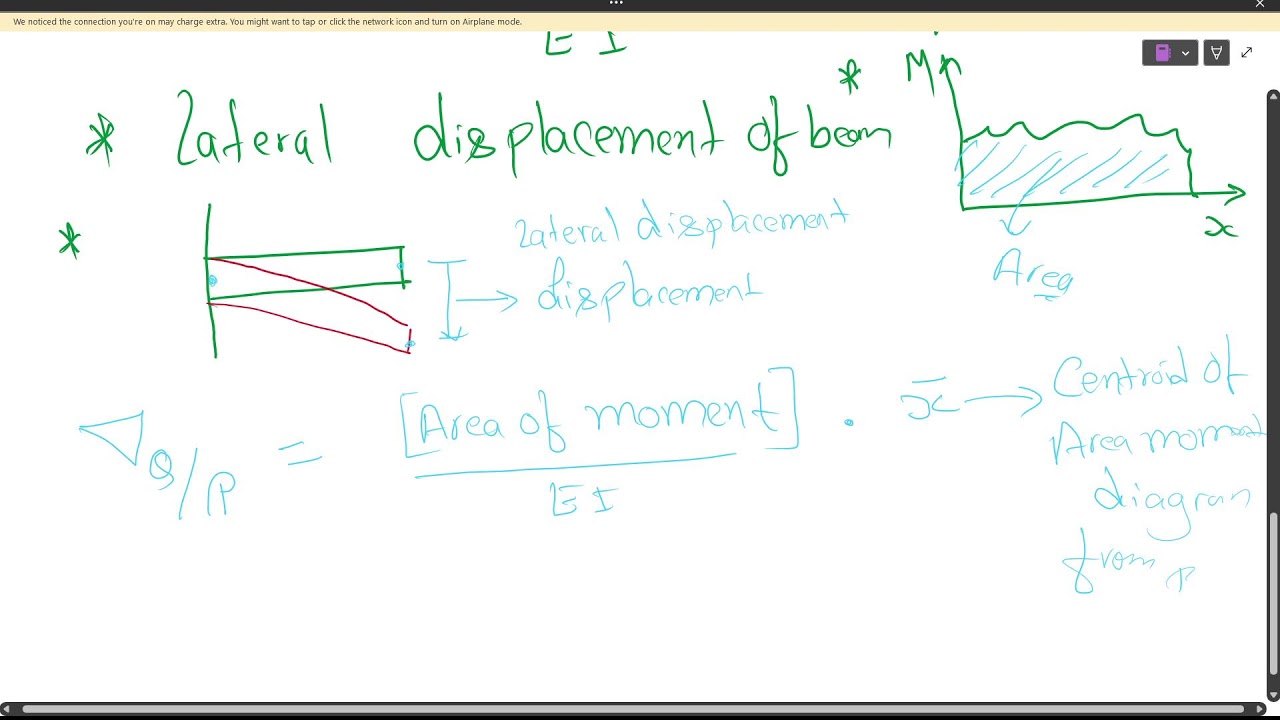 We noticed the connection you're on may charge extra. You might want to tap or click the network icon and turn on Airplane mode.
E I
* Lateral displacement of beam
* M
x
Area
*
Lateral displacement
displacement
Δ Q/P = [Area of moment] . x̄ → Centroid of
EI
Area moment
diagram
from P